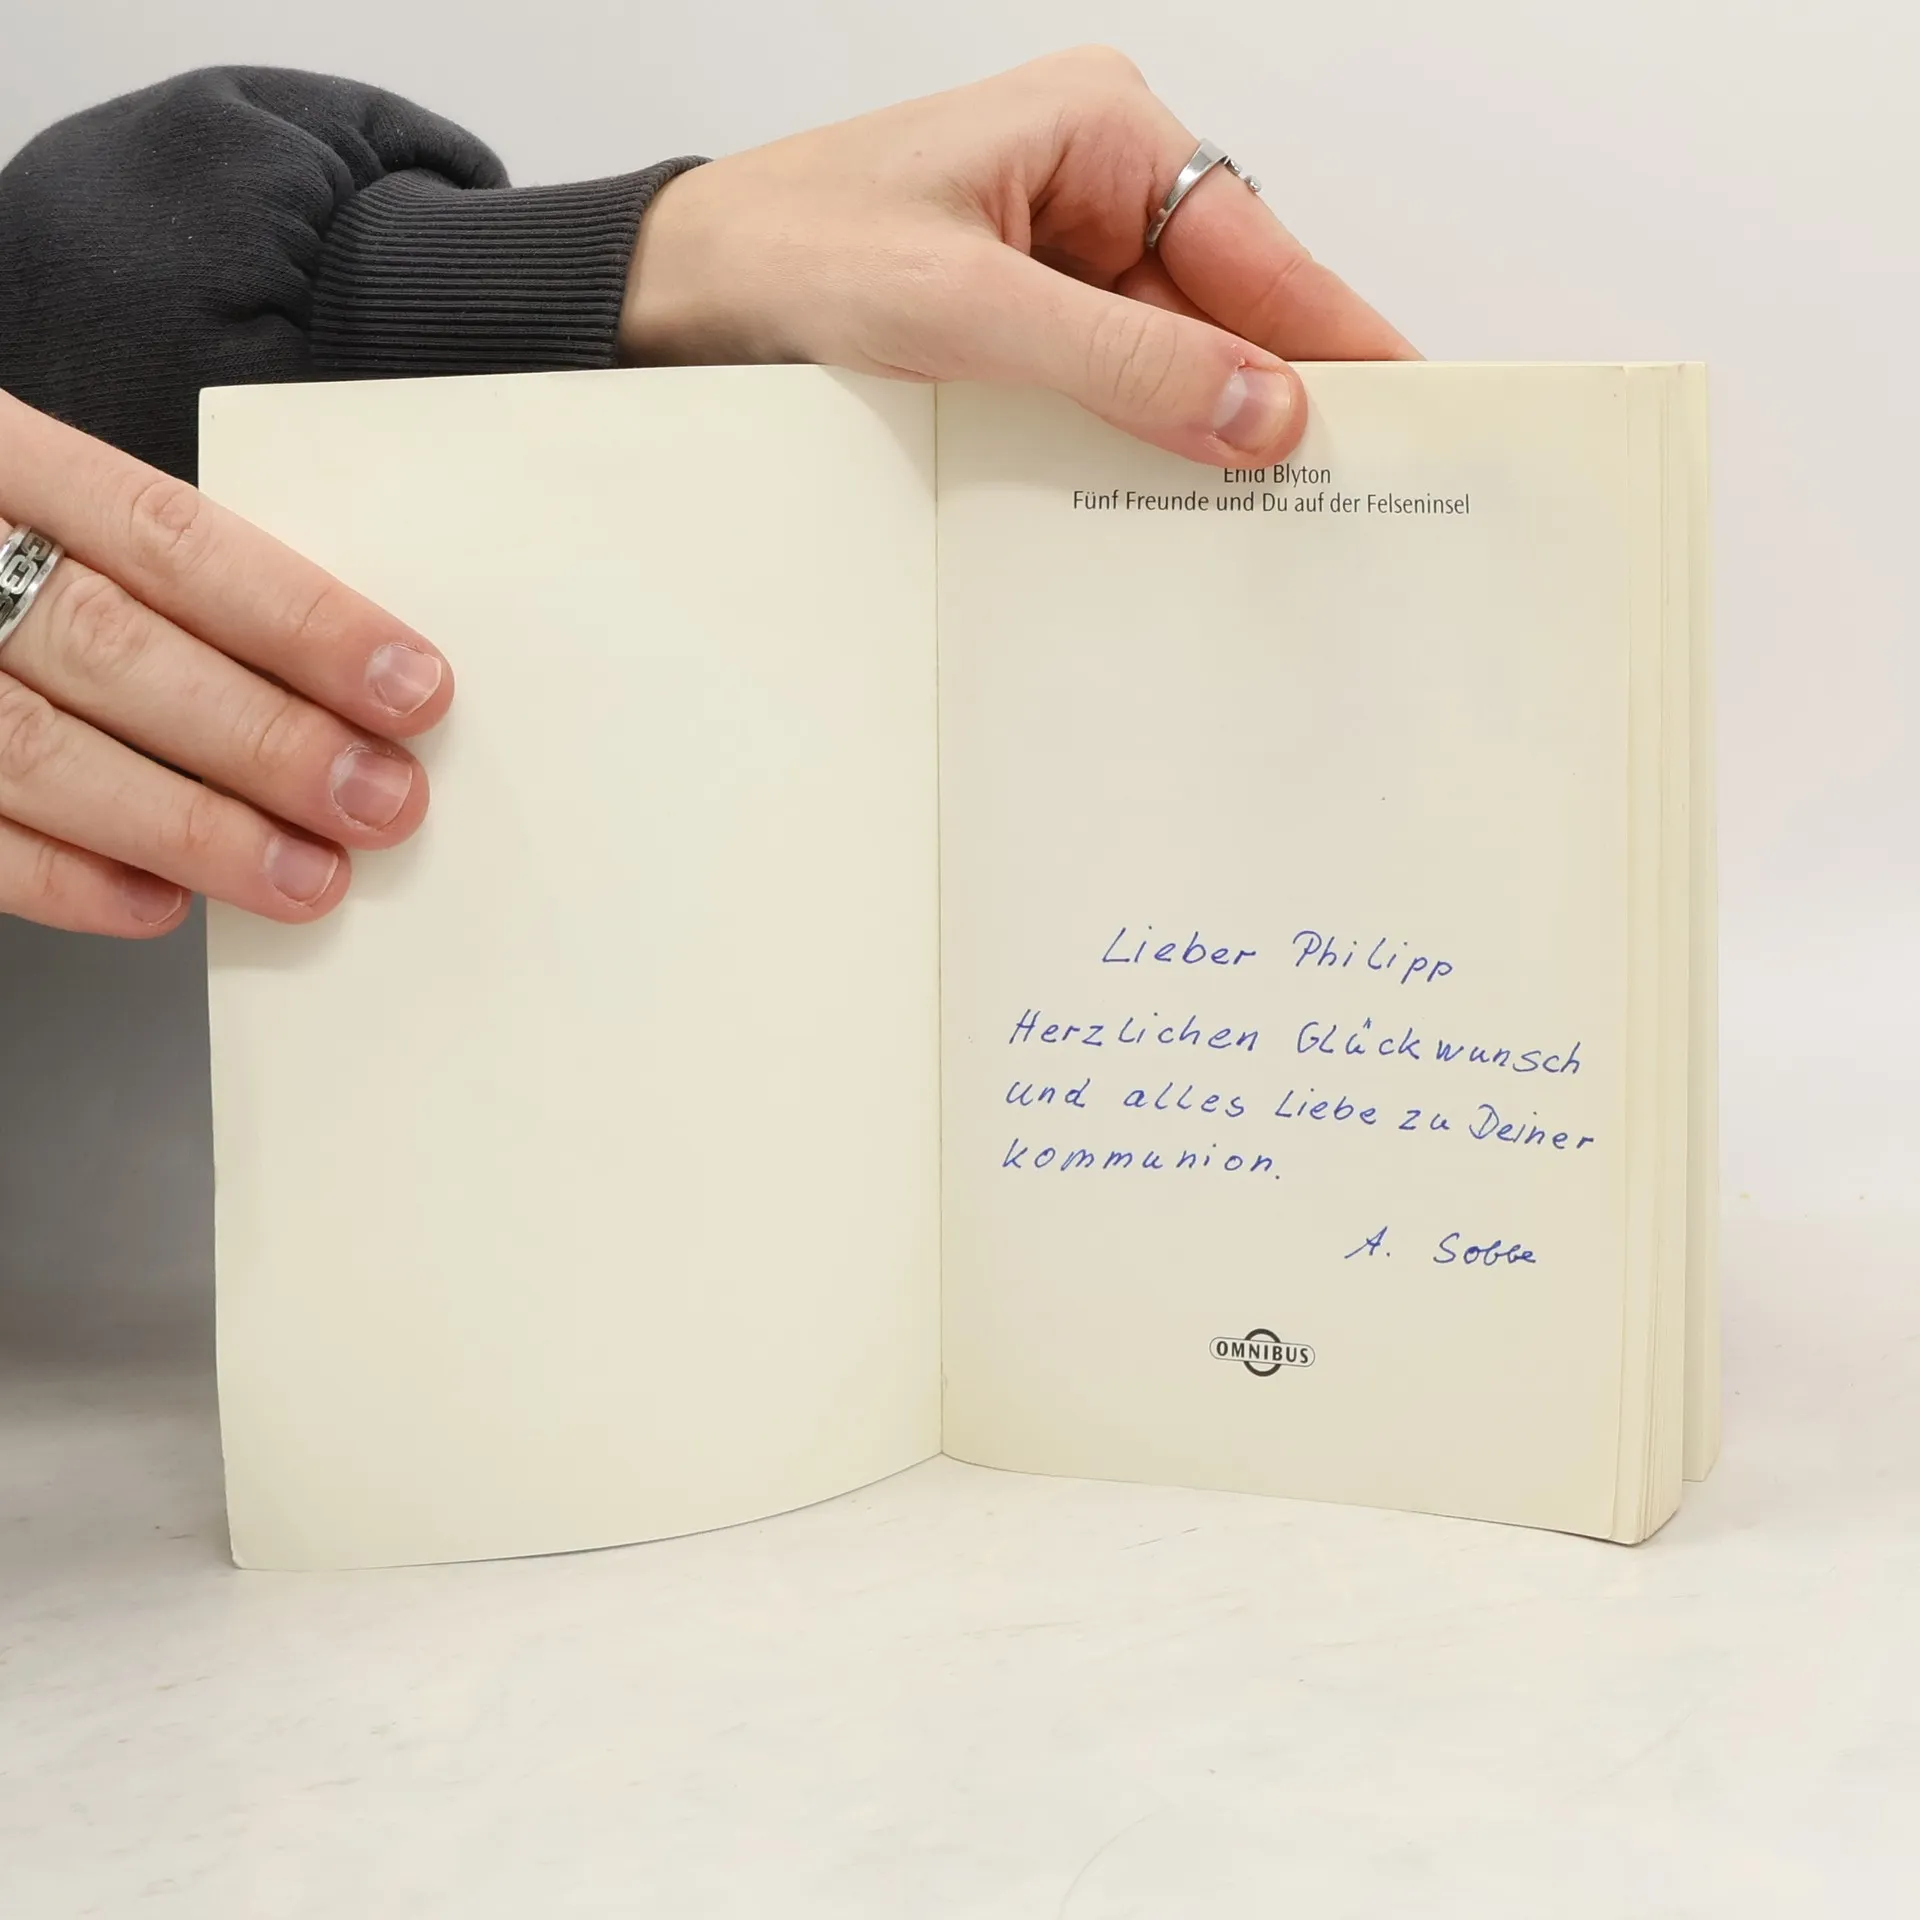 Enid Blyton
Fünf Freunde und Du auf der Felseninsel
Lieber Philipp
Herzlichen Glückwunsch
und alles Liebe zu Deiner
Kommunion.
A. Sobbe
OMNIBUS